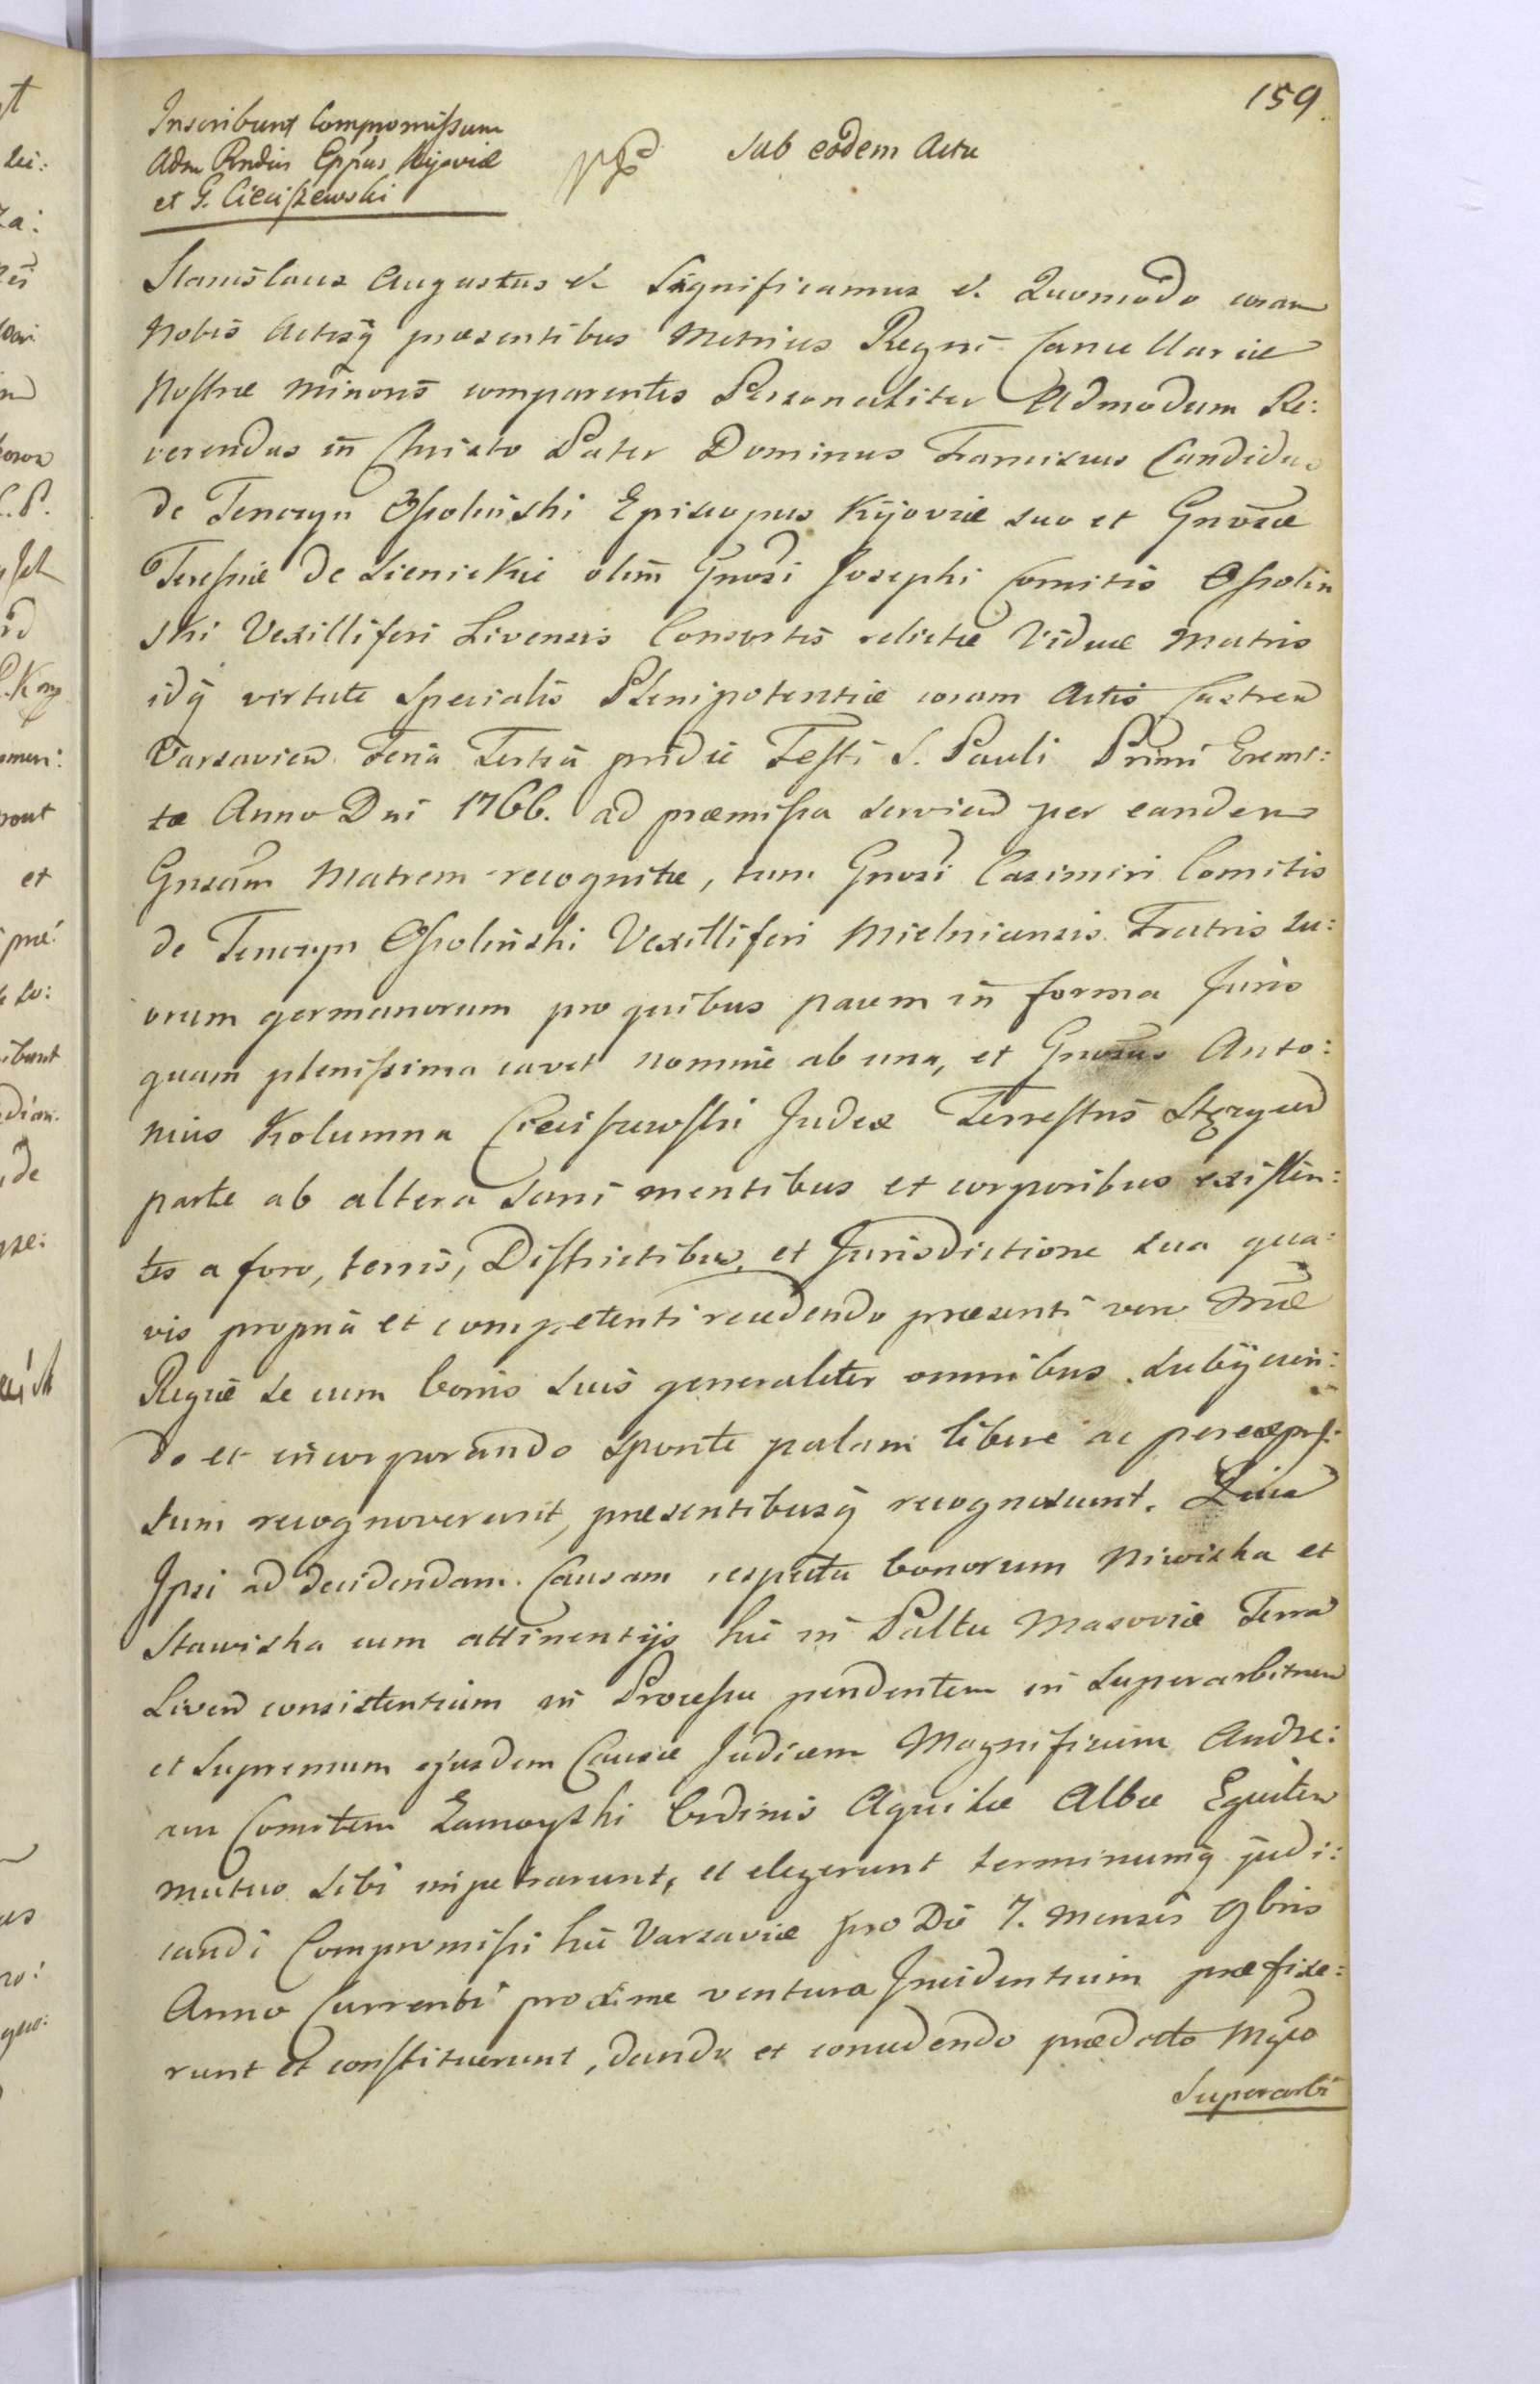 159.
Inscribunt Compromissum
Adm Rndus Eppus Kijoviæ
et G. Cieciszewski
Sub eodem Actu
Stanislaus Augustus &c Significamus &c. Quomodo coram
Nobis Actisq̃ præsentibus Metrices Regni Cancellariæ
Nostræ Minoris comparentes Personaliter Admodum Re:
verendus in Christo Pater Dominus Franciscus Candidus
de Tenczyn Ossoliński Episcopus Kijoviæ suo et Gnosæ
Teressiæ de Sienickie olim Gnosi Josephi Comitis Ossolin
ski Vexilliferi Livensis Consortis relictæ Viduæ Matris
idq̃ virtute specialis Plenipotentiæ coram Actis Castren
Varsavien Feria Tertia pridie Festi S. Pauli Primi Eremi:
tæ Anno Dni 1766. ad præmissa servien per eandem
Gnsam Matrem recognitæ, tum Gnosi Casimiri Comitis
de Tenczyn Ossoliński Vexilliferi Mielnicensis Fratris su:
orum germanorum pro quibus pacem in forma Juris
quam plenissima cavet nomine ab una, et Gnosus Anto:
nius Kolumna Cieciszewski Judex Terrestris Stęzycen
parte ab altera sani mentibus et corporibus existen:
tes a foro, terris, Districtibus, et Jurisdictione sua qua:
vis propria et competenti recedendo præsenti vero Mtriæ
Regni se cum bonis suis generaliter omnibus subijcien:
do et incorporando sponte palam libere ac per expres:
sum recognoverunt, præsentibusq̃ recognoscunt. Quia
Ipsi ad decidendam Causam respectu bonorum Niwiska et
Stawiska cum attinentijs hic in Palttu Masoviæ Terra
Liven consistentium in Processu pendentem in Superarbitrum
et Supremum ejusdem Causæ Judicem Magnificum Andre:
am Comitem Zamoyski Ordinis Aquilæ Albæ Equitem
mutuo sibi impetrarunt, et elegerunt terminumq̃ judi:
candi Compromissi hic Varsaviæ pro Die 7. Mensis 9bris
Anno Currenti proxime ventura Incidentium præfixe:
runt et constituerunt, dando et concedendo prædicto Mgco
Superarbi